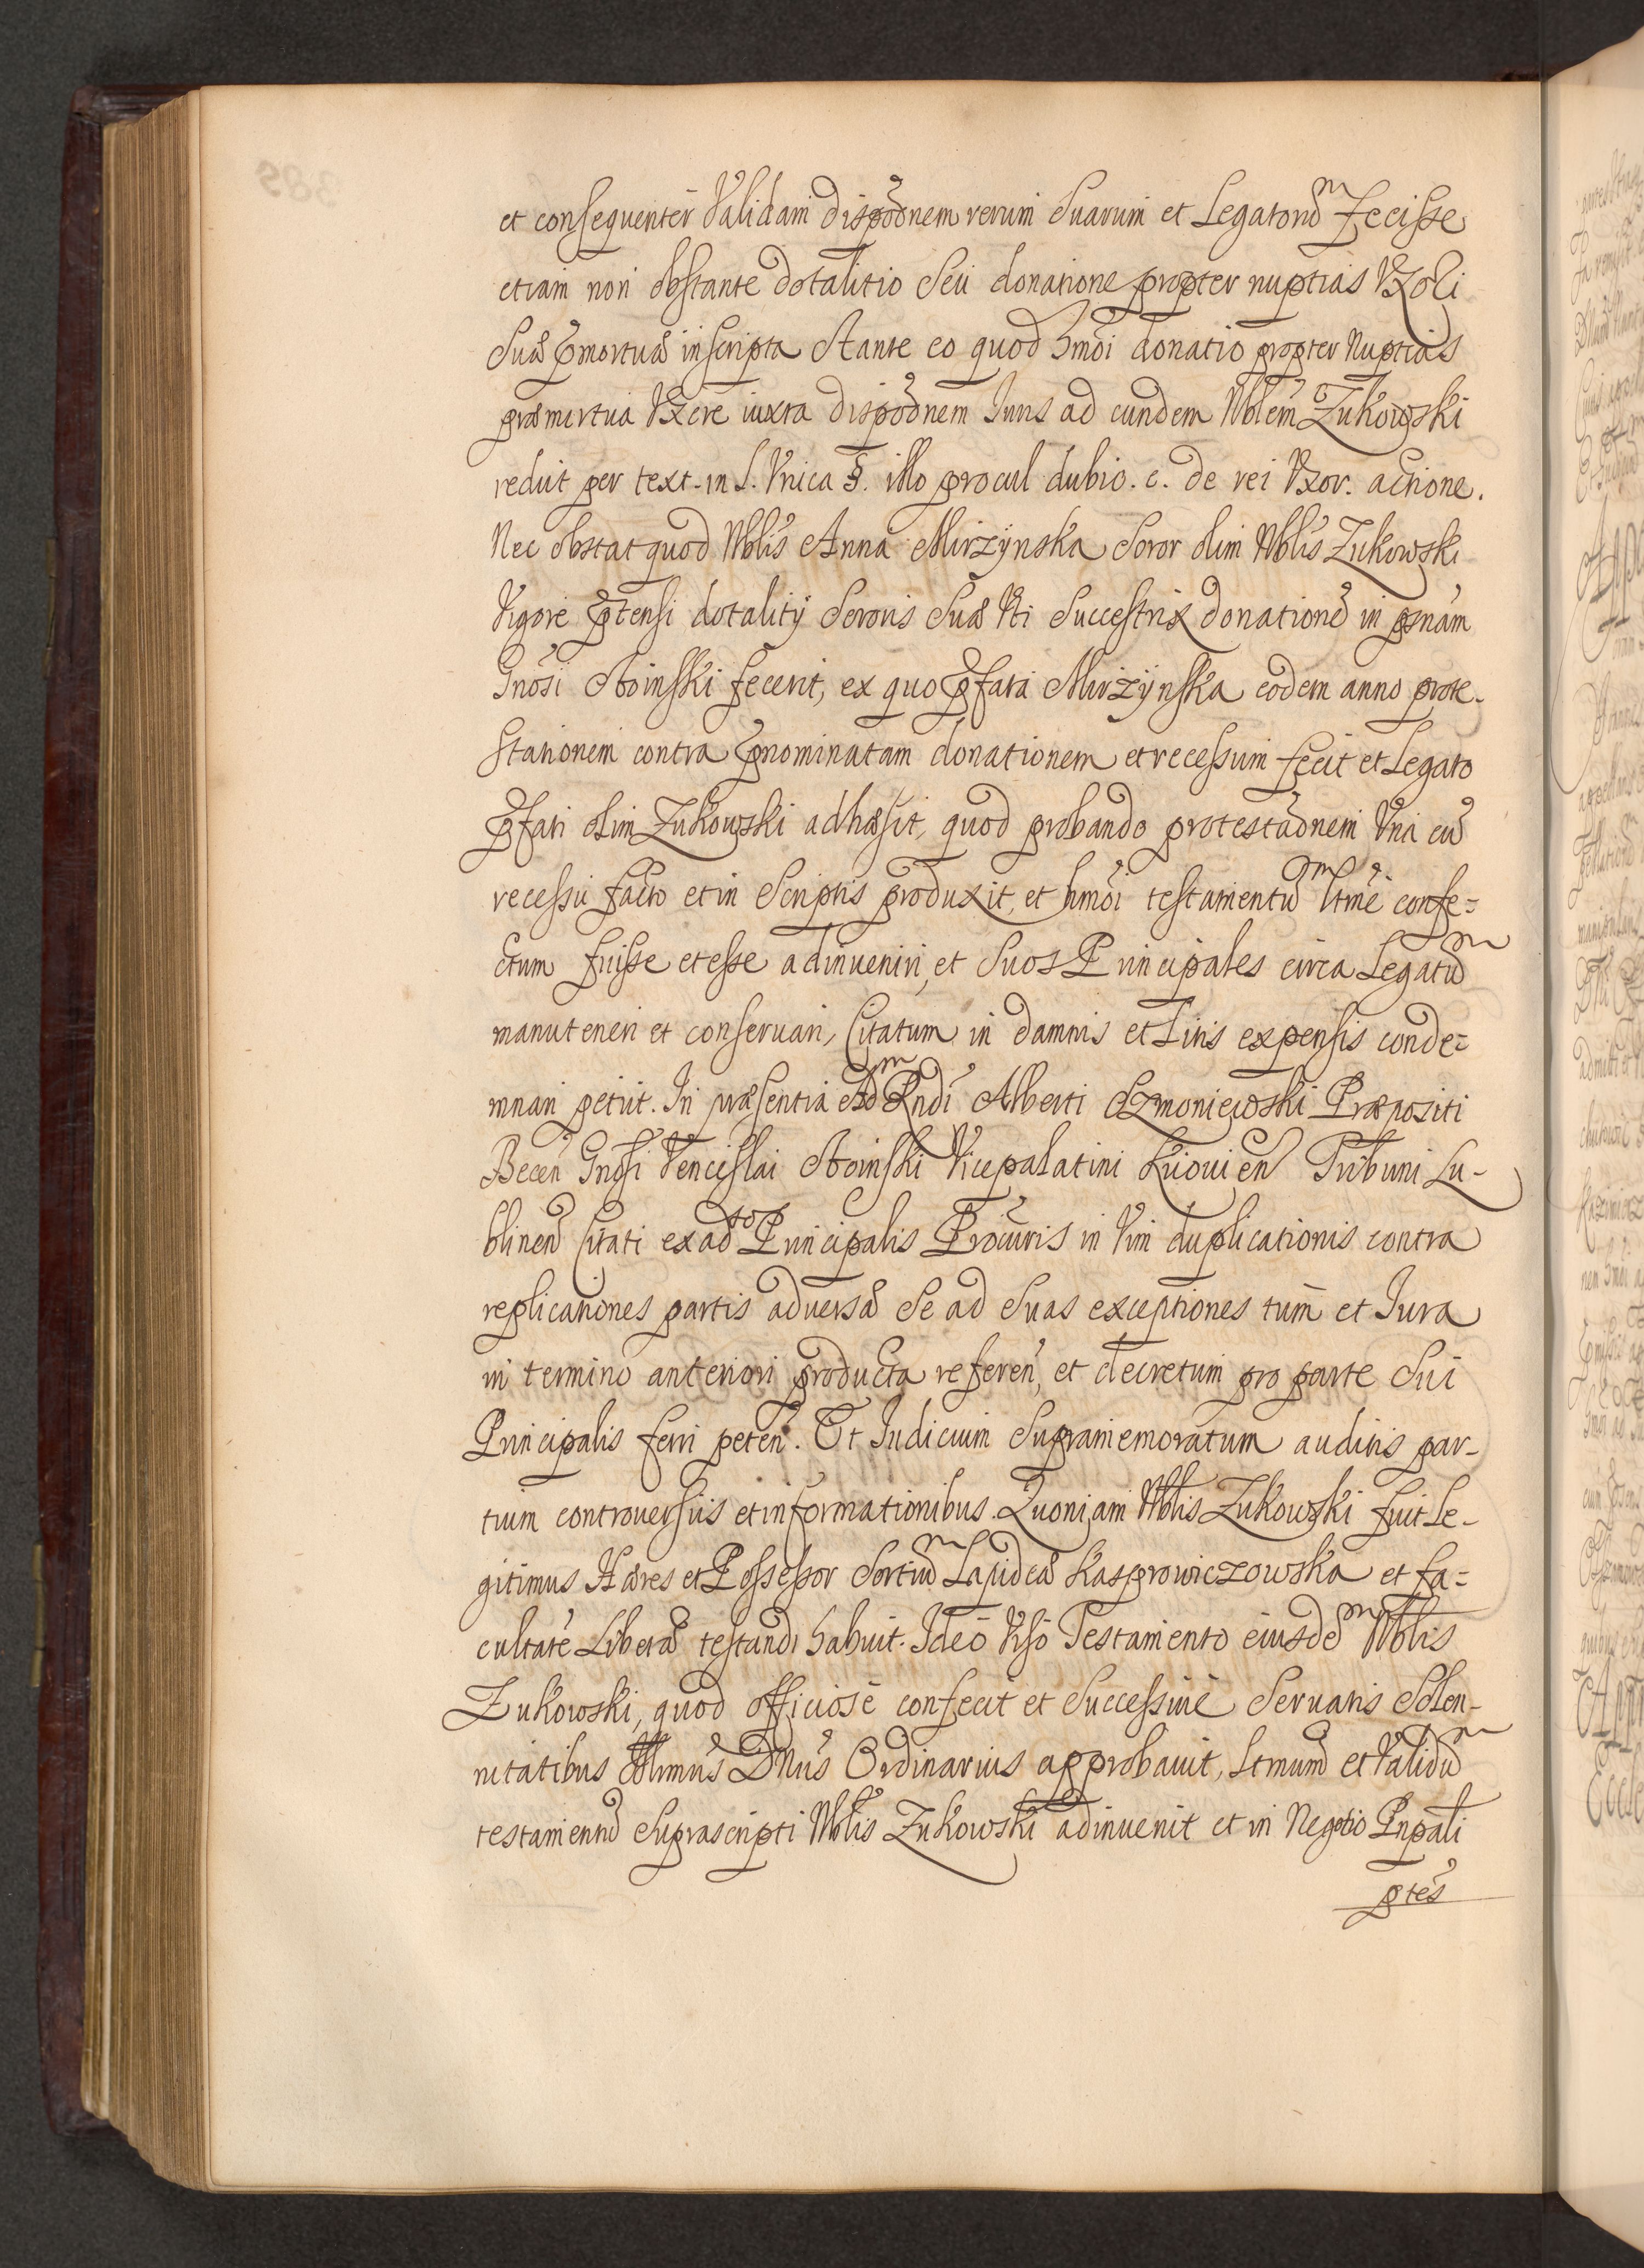 et consequenter Validam dispõnem rerum Suarum et Legatorũ fecisse
etiam non obstante dotalitio Seu donatione propter nuptias Vxori
Suæ p̃mortuæ inscripta Stante eo quod hmõi donatio propter Nuptias
præmortua Vxore iuxta dispõnem Juris ad eundem Nblem Zukowski
redit per text. in L. Vnica §. illo procul dubio. c. de rei Vxor. actione.
Nec obstat quod Nblis Anna Mirzynska Soror olim Nblis Zukowski
Vigore p̃tensi dotalitij Sororis Suæ Vti Successtrix donationẽ in p̃snam
Gnosi Stoinski fecerit, ex quo p̃fata Mirzynska eodem anno prote-
stationem contra p̃nominatam donationem et recessum fecit et Legato
p̃fati olim Zukowski adhæsit, quod probando protestãonem Vna cũ
recessu facto et in Scriptis produxit, et hmõi testamentũ ltmẽ confe=
ctum fuisse et esse adinueniri, et Suos Principales circa Legatũ
manuteneri et conseruari, Citatum in damnis et Litis expensis conde=
mnari petiit. In præsentia Adm Rndi Alberti Szmoniewski Præpositi
Becen̄ Gnosi Venceslai Stoinski Vicepalatini Kiouien̄ Tribuni Lu-
blinen̄ Citati ex adto Principalis Procuris in Vim duplicationis contra
replicationes partis aduersæ Se ad Suas exceptiones tum et Jura
in termino anteriori producta referen̄, et decretum pro parte Sui
Principalis ferri peten̄. Et Judicium Supramemoratum auditis par-
tium controuersiis et informationibus. Quoniam Nblis Zukowski fuit Le-
gitimus Hæres et Possessor Sortiũ Lapideæ Kasprowiczowska et fa=
cultatẽ Liberã testandi habuit. Ideo Viso Testamento eiusdẽ Nblis
Zukowski, quod officiose confecit et Successiue Seruatis Solen-
nitatibus Illmus Dnus Ordinarius approbauit, Ltmum et Validũ
testamentũ Suprascripti Nblis Zukowski adinuenit et in Negotio Pnpali
p̃tes